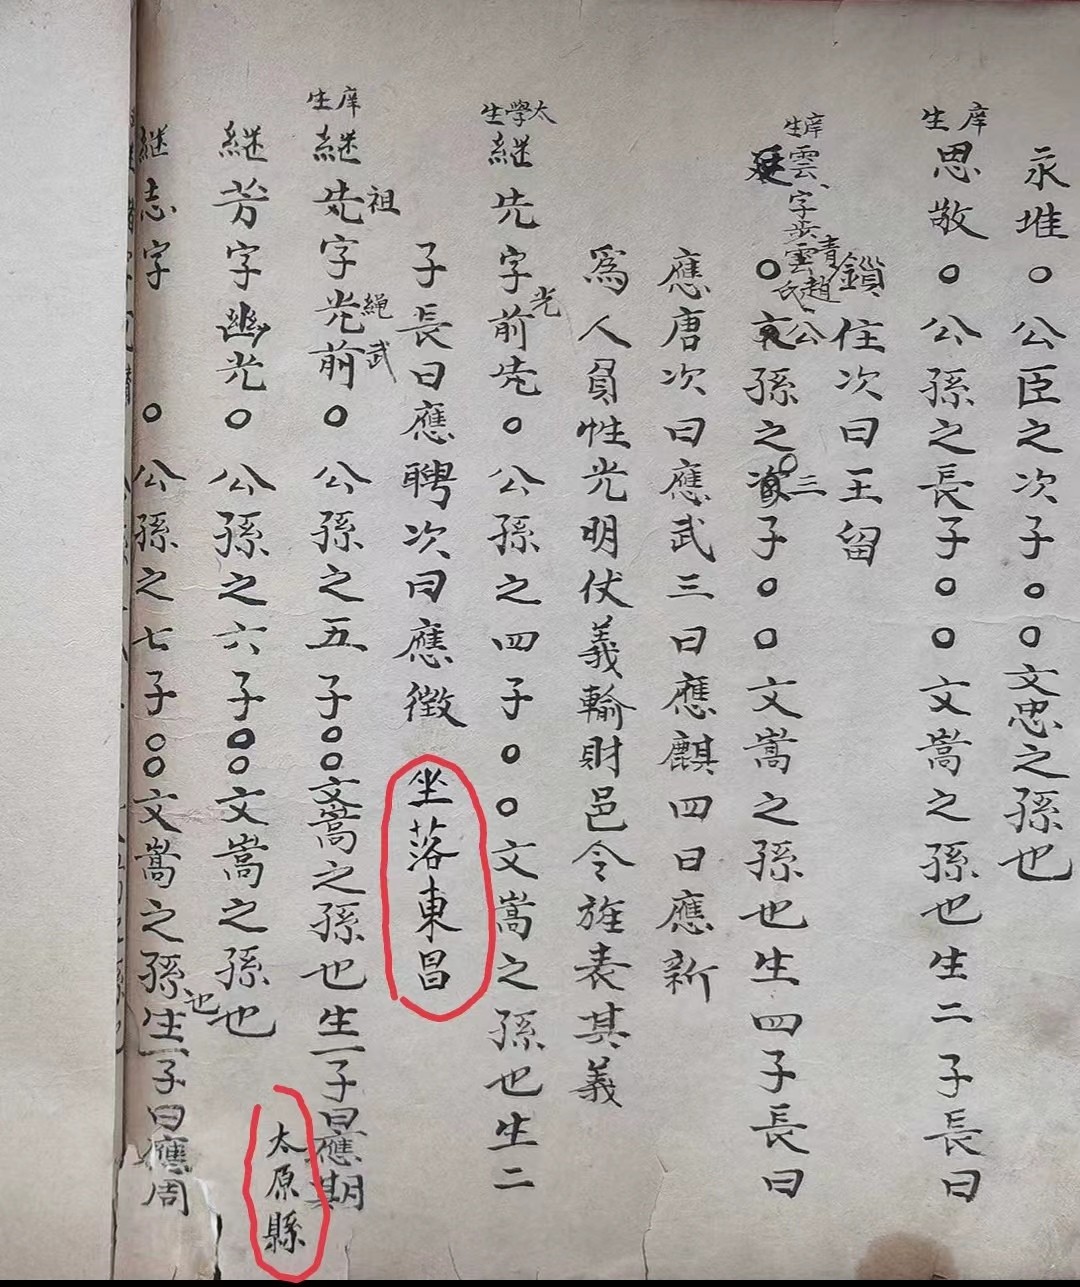 永堆○公臣之次子○○文忠之孫也
庠生
思敬○公孫之長子○○文嵩之孫也生二子長曰
鎖住次曰王留
庠生
雲字步雲
青趙氏
○公孫之三子○○文嵩之孫也生四子長曰
應唐次曰應武三曰應麒四曰應新
爲人員性光明仗義輸財邑令旌表其義
太學生
継先字前光○公孫之四子○○文嵩之孫也生二
子長曰應聘次曰應徵
坐落東昌
庠生
継祖字光前○公孫之五子○○文嵩之孫也生一子曰應期
繩武
継芳字幽光○公孫之六子○○文嵩之孫也
太原縣
継志字○公孫之七子○○文嵩之孫也生一子曰應周